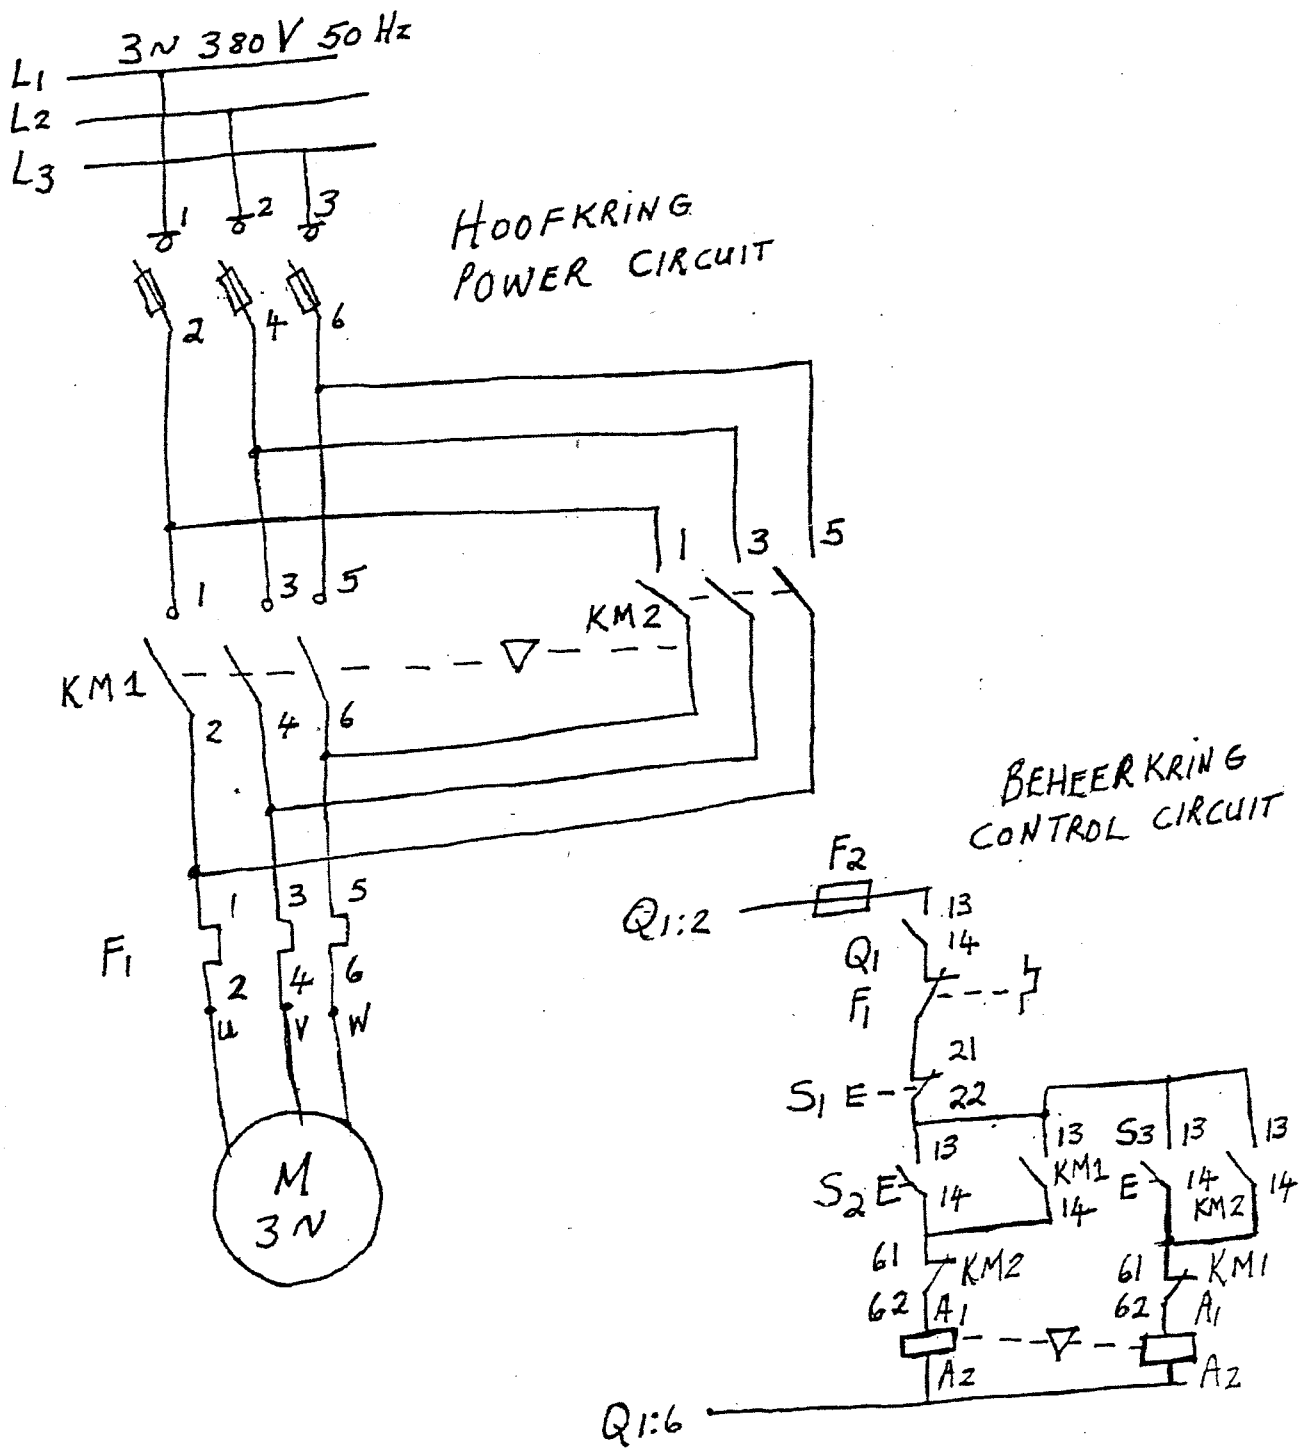 3N 380V 50 Hz
L1
L2
L3
1 2 3
HOOFKRING
POWER CIRCUIT
2 4 6
1 3 5
KM2
1 3 5
KM1
2 4 6
BEHEERKRING
CONTROL CIRCUIT
1 3 5
F1
2 4 6
U V W
M
3N
F2
Q1:2
13
Q1 14
F1
21
S1 E 22
13 13 S3 13 13
S2 E 14 KM1 14 E 14 KM2 14
61 KM2 61 KM1
62 A1 62 A1
A2 A2
Q1:6